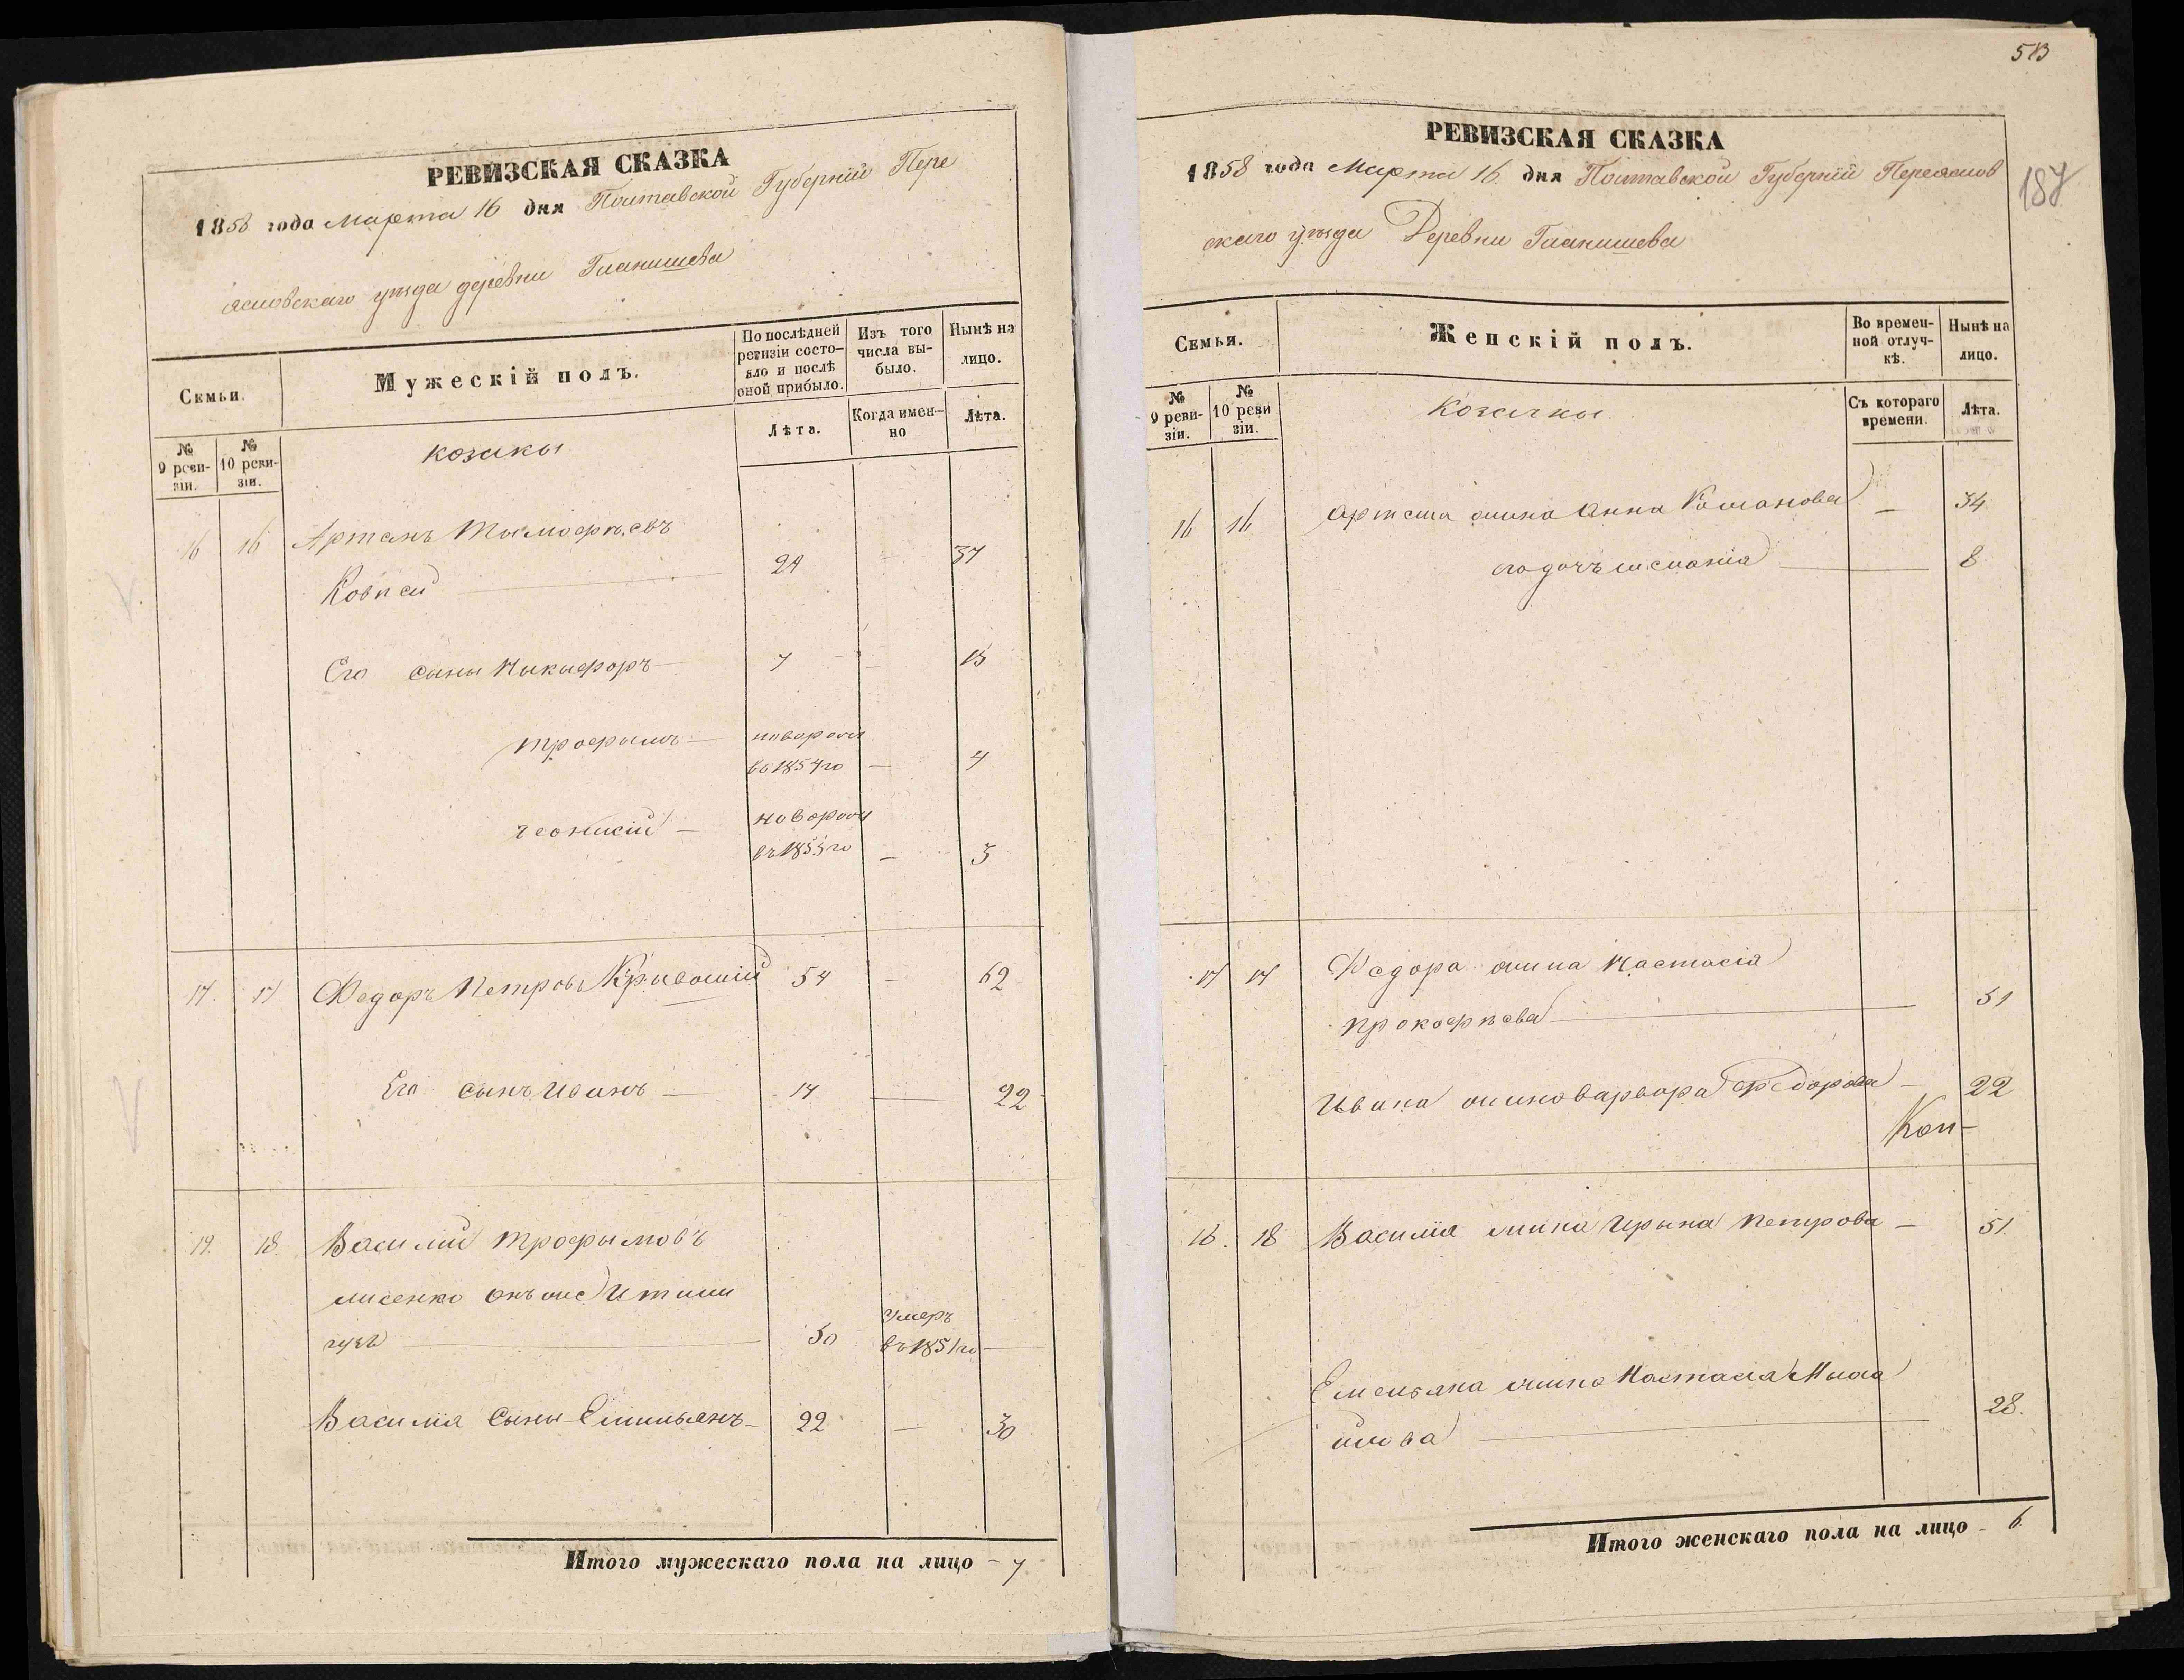 РЕВИЗСКАЯ СКАЗКА
1858 года Марта 16 дня Полтавской Губерніи Пере
яславскаго уѣзда деревни Гланишева
Семьи.
Мужескій полъ.
По послѣдней ревизіи состояло и послѣ оной прибыло.
Изъ того числа выбыло.
Нынѣ на лицо.
№ 9 ревизіи.
№ 10 ревизіи.
козаки
Лѣта.
Когда именно
Лѣта.
16 16 Артемъ Тимофѣевъ
Ковпей 29 - 37
Его сыны Никифоръ 7 - 15
Трофимъ - новорож
въ 1854 го - 4
новорож
въ 1855 го - 3
17. 17 Федоръ Петровъ Кривошій 54 - 62
Его сынъ Иванъ - 14 22
19. 18. Василій Трофимовъ
лисенко онъ же
50 умеръ
въ 1851 го
Василія сыны Емильянъ - 22 - 30
Итого мужескаго пола на лицо - 7
513
187
РЕВИЗСКАЯ СКАЗКА
1858 года Марта 16 дня Полтавской Губерніи Переяслов
скаго уѣзда Деревни Гланишева
Семьи.
Женскій полъ.
Во временной отлучкѣ.
Нынѣ на лицо.
№ 9 ревизіи.
№ 10 ревизіи.
козачки
Съ котораго времени.
Лѣта.
16 16 Артема жина Анна Романова - 34
его дочъ 8
17 17 Федора жина Настасія
Прокофѣева 51
Ивана жина Варвара Федорова - 22
Коп
18. 18 Василія жина Ирына Петрова - 51.
Емельяна жина Настасія Миха
йлова 28.
Итого женскаго пола на лицо - 6.